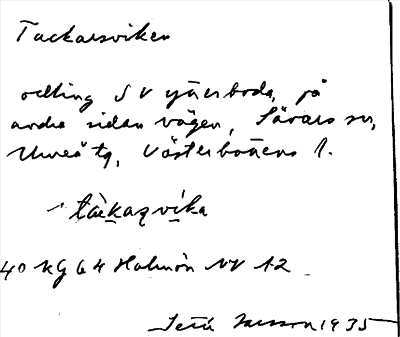 Tackarsviken
odling SV Ytterboda, på
andra sidan vägen, Sävars sn,
Umeå tg, Västerbottens l.
tàckaṣvìka
40 KG 64 Holmön NV 12
1935